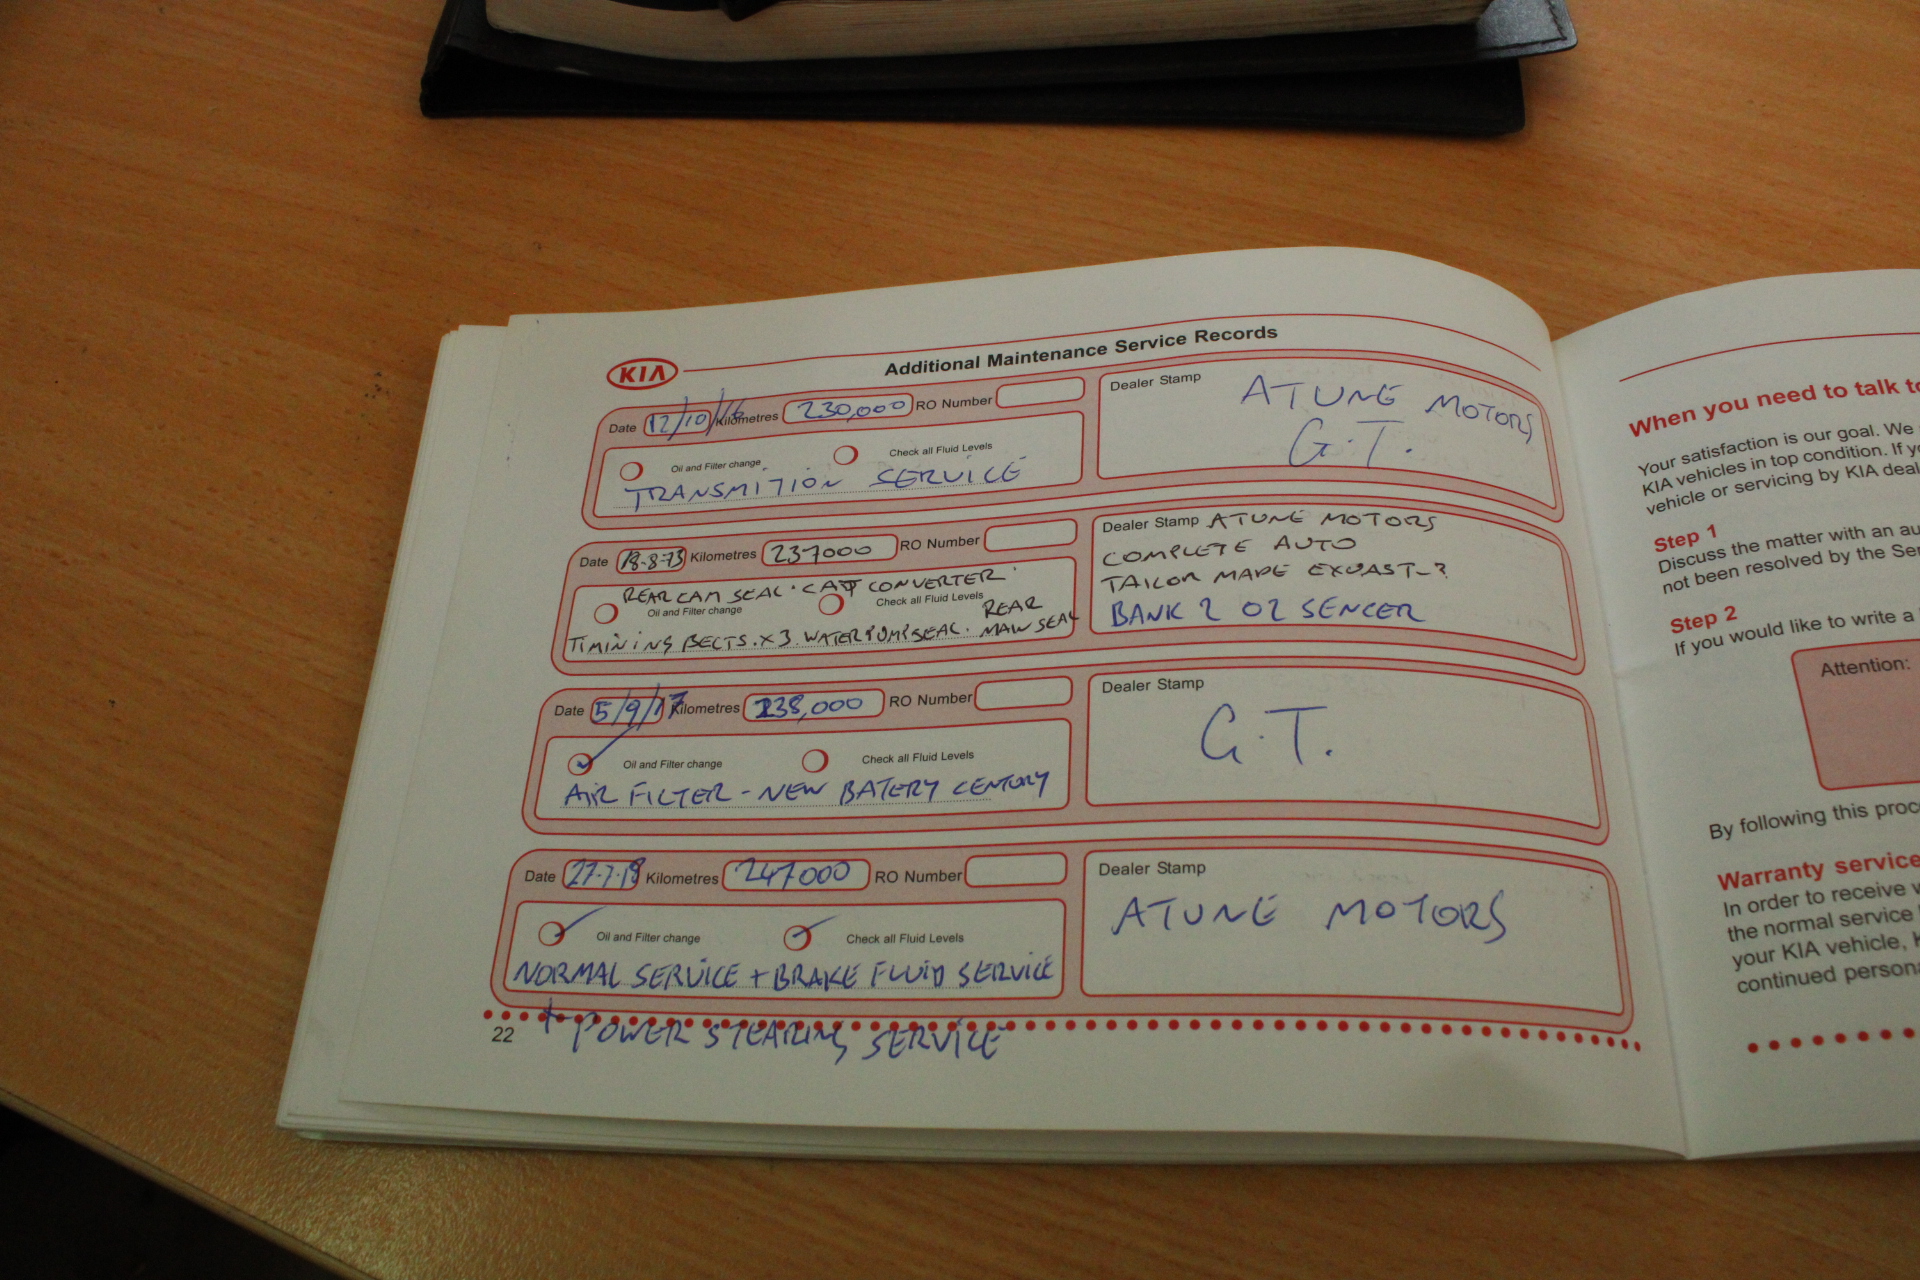 KIA
Additional Maintenance Service Records
Date 12/10/16 Kilometres 230,000 RO Number
Oil and Filter change Check all Fluid Levels
TRANSMITION SERVICE
Dealer Stamp ATUNE MOTORS
G.T.
Date Kilometres 237000 RO Number
REAR CAM SEAL. CAT CONVERTER.
Oil and Filter change Check all Fluid Levels
TIMINING BELTS. X3. WATER PUMP SEAL. REAR
MAIN SEAL
Dealer Stamp ATUNE MOTORS
COMPLETE AUTO
TAILOR MADE EXUAST-?
BANK 2 O2 SENCER
Date 5/9/17 Kilometres 238,000 RO Number
Oil and Filter change Check all Fluid Levels
AIR FILTER - NEW BATERY CENTURY
Dealer Stamp
G.T.
Date 27.7.18 Kilometres 247000 RO Number
Oil and Filter change Check all Fluid Levels
NORMAL SERVICE + BRAKE FLUID SERVICE
+ POWER STEARING SERVICE
Dealer Stamp
ATUNE MOTORS
22
When you need to talk to
Your satisfaction is our goal. We
KIA vehicles in top condition. If
vehicle or servicing by KIA
Step 1
Discuss the matter with an
not been resolved by the
Step 2
If you would like to write a
Attention:
By following this
Warranty service
In order to receive
the normal service
your KIA vehicle,
continued